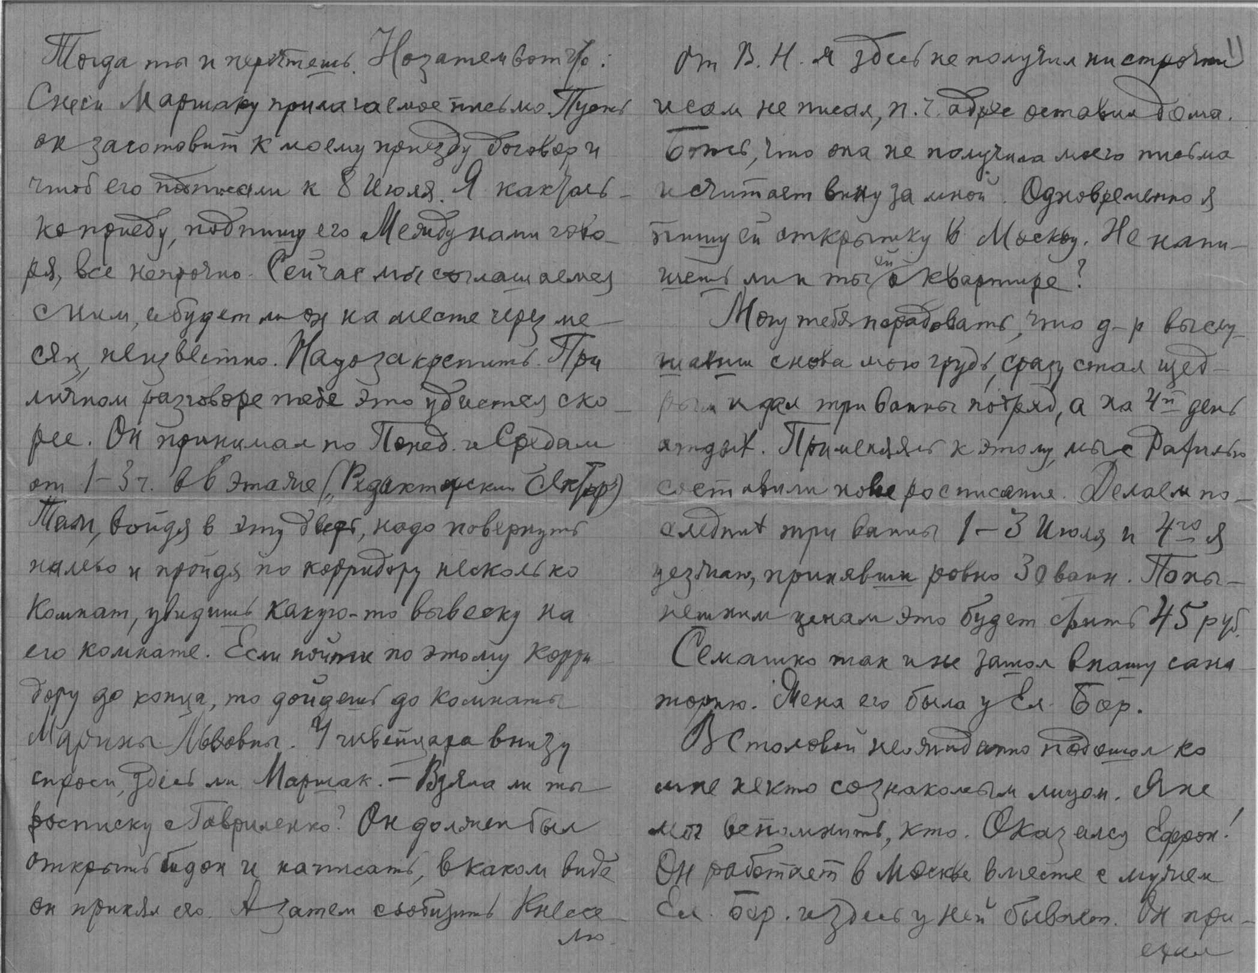 Тогда ты и перейдешь. Но затем вот что:
Снеси Маршаку прилагаемое письмо. Пусть
он заготовит к моему приезду договор и
чтоб его подписали к 8 Июля. Я как толь-
ко приеду, подпишу его. Между нами гово-
ря, все непрочно. Сейчас мы соглашаемся
с ним, а будет ли он на месте через ме-
сяц, неизвестно. Надо закрепить. При
личном разговоре тебе это удастся ско-
рее. Он принимал по Понед. и Средам
от 1-3 ч. в этаже (Редакторский Сектор)
Там, войдя в эту дверь, надо повернуть
налево и пройдя по корридору несколько
комнат, увидишь какую-то вывеску на
его комнате. Если пойти по этому корри-
дору до конца, то дойдешь до комнаты
Марины Львовны. У швейцара внизу
спроси, здесь ли Маршак. — Взяла ли ты
росписку с Гавриленко? Он должен был
открыть бидон и написать, в каком виде
он принял его. А затем сообщить Кнессе-
лю.
11
От В. Н. я здесь не получил ни строчки
и сам не писал, п. ч. адрес оставил дома.
Боюсь, что она не получила моего письма
и считает вину за мной. Одновременно я
пишу ей открытку в Москву. Не напи-
шешь ли и ты ей о квартире?
Могу тебя порадовать, что д-р выслу-
шавши снова мою грудь, сразу стал щед-
рым и дал три ванны подряд, а на 4й день
отдых. Применяясь к этому, мы с Рафилью
составили новое росписание. Делаем по-
следние три ванны 1-3 Июля и 4го я
уезжаю, принявши ровно 30 ванн. По ны-
нешним ценам это будет стоить 45 руб.
Семашко так и не зашол в нашу сана-
торию. Жена его была у Ел. Бор.
В столовой неожиданно подошол ко
мне некто со знакомым лицом. Я не
мог вспомнить, кто. Оказался Ефрон!
Он работает в Москве вместе с мужем
Ел. Бор. и здесь у ней бывает. Он при-
ехал